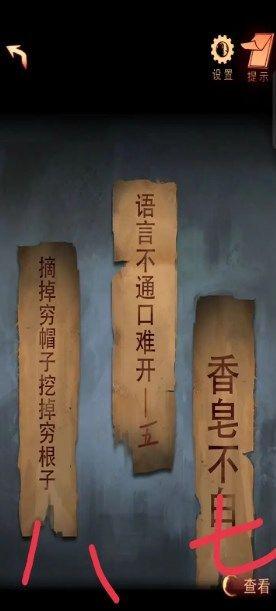 设置
提示
摘掉穷帽子挖掉穷根子
八
语言不通口难开——五
香皂不白
七
查看